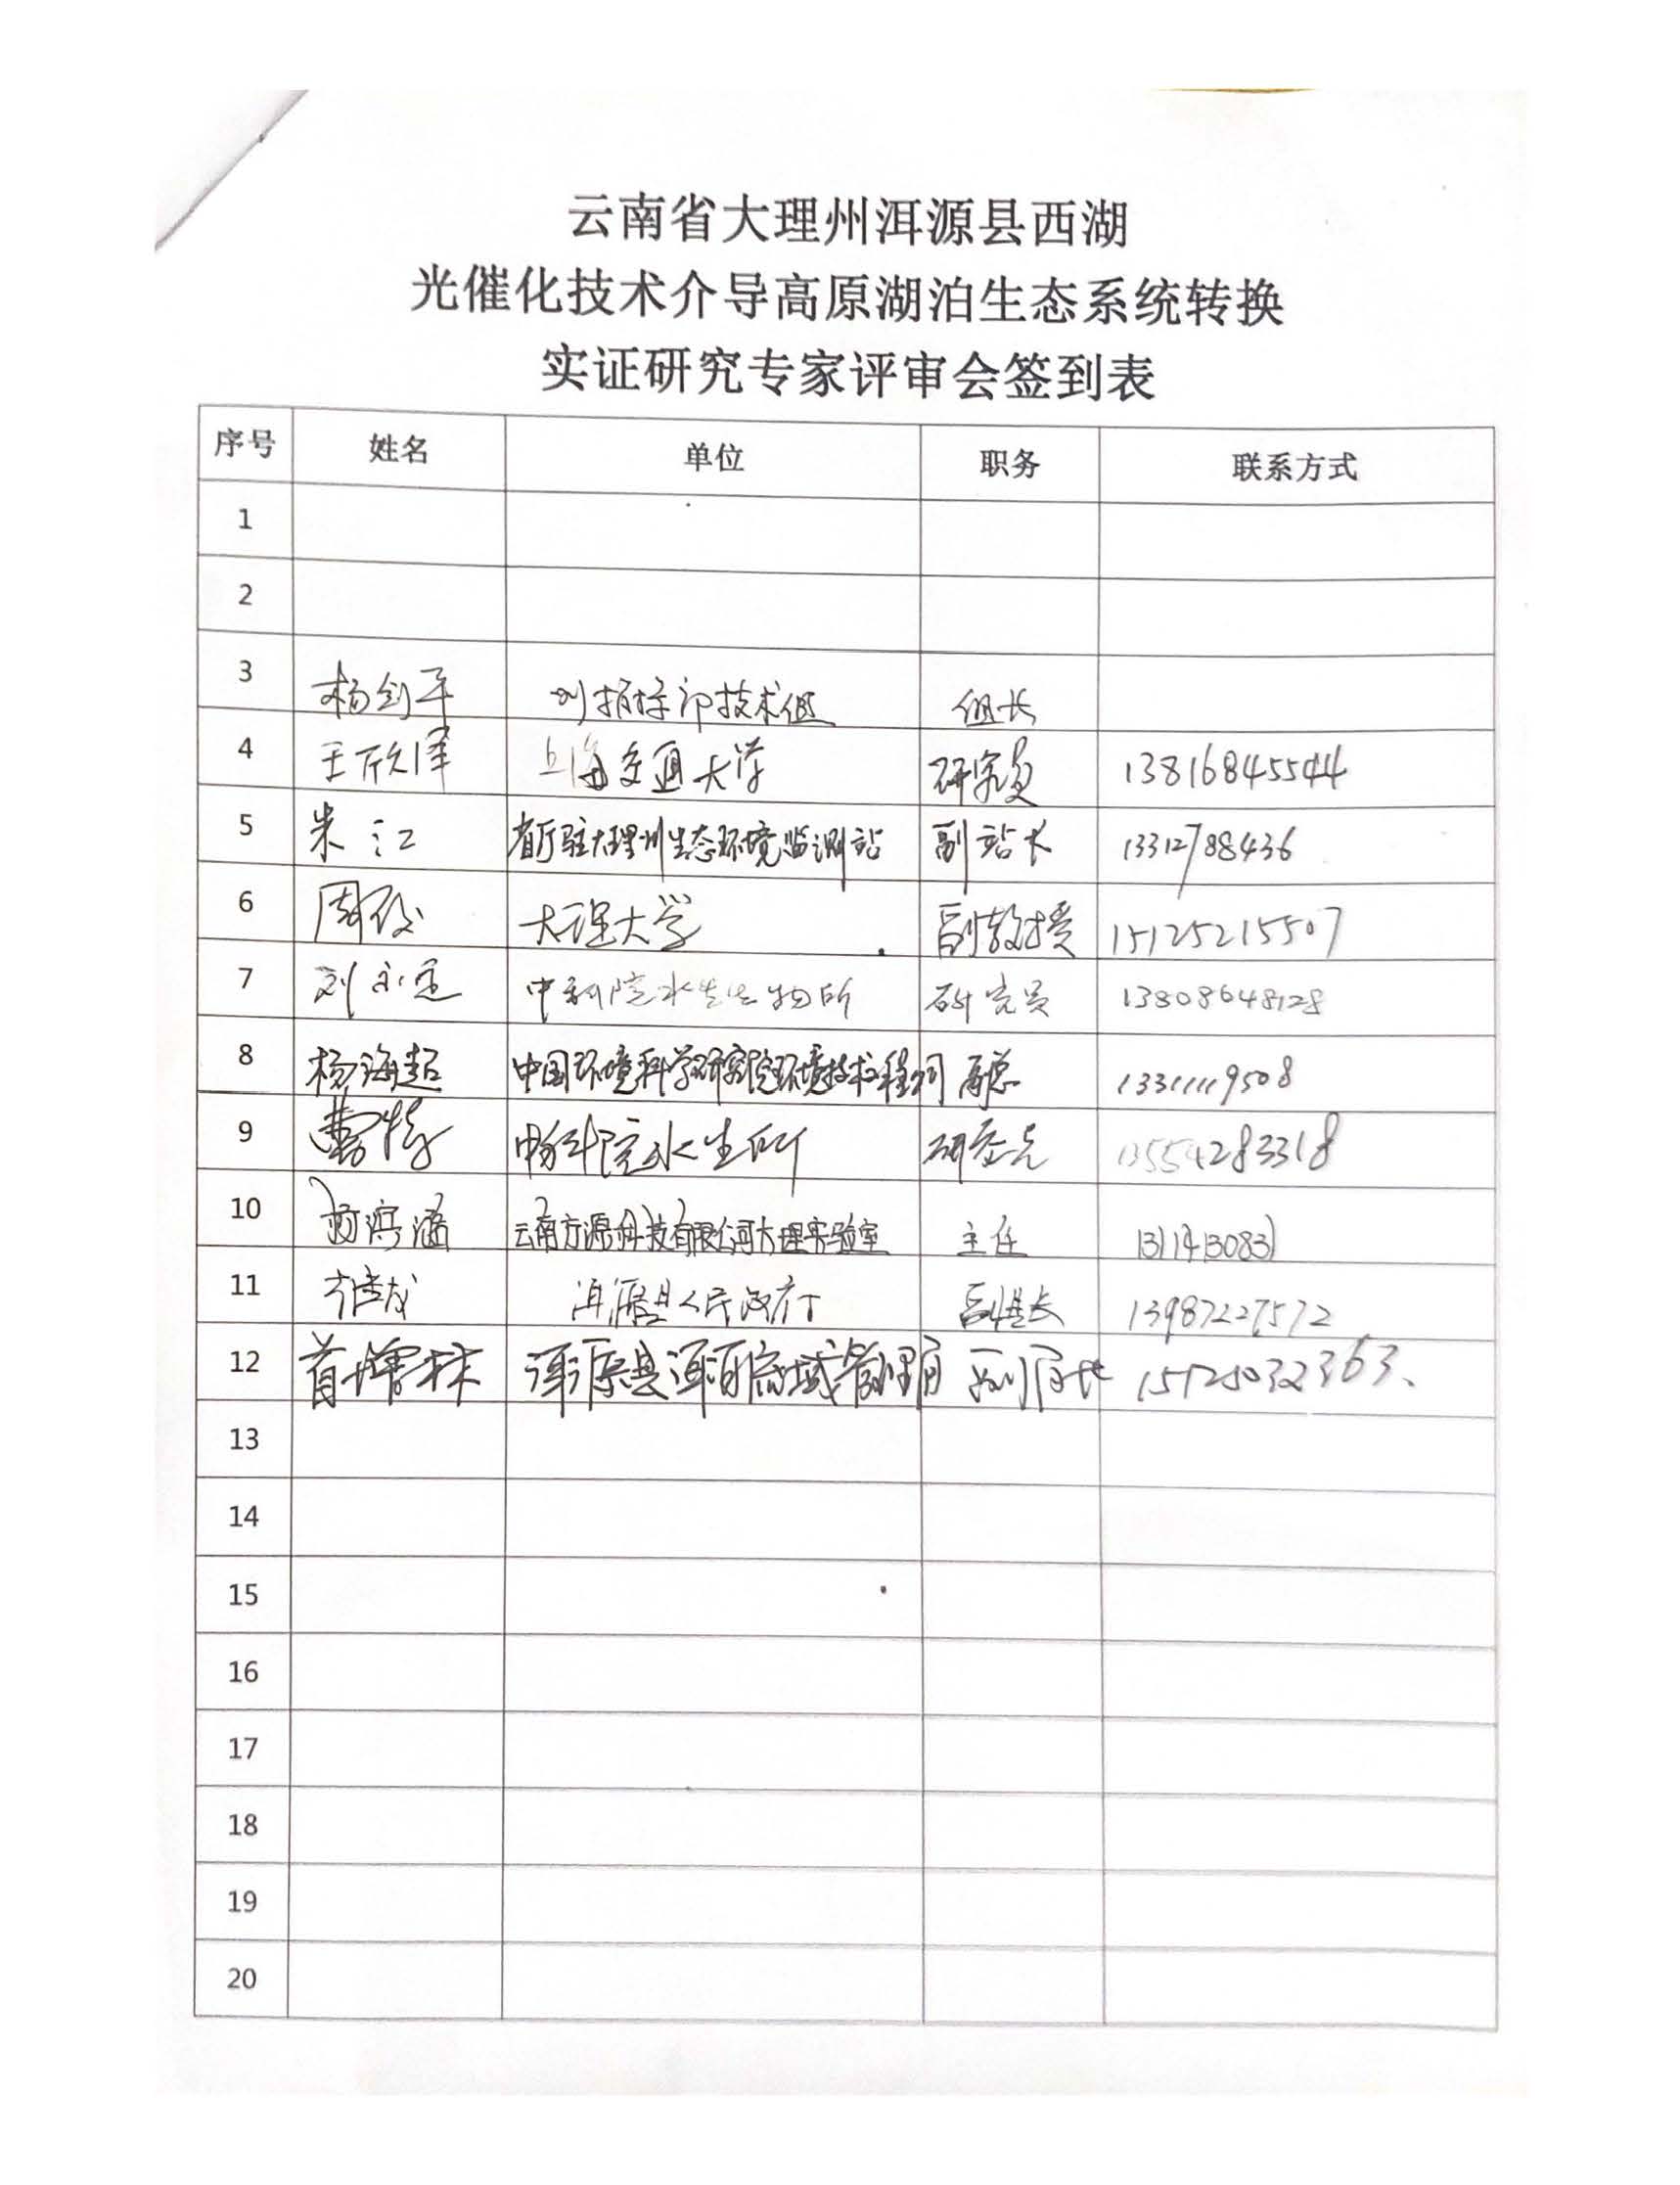 云南省大理州洱源县西湖
光催化技术介导高原湖泊生态系统转换
实证研究专家评审会签到表
序号 姓名 单位 职务 联系方式
1
2
3 杨剑平 州指挥部技术组 组长
4 王欣泽 上海交通大学 研究员 13816845544
5 朱江 省厅驻大理州生态环境监测站 副站长 13312788436
6 周 大理大学 副教授 15125215507
7 刘永定 中科院水生生物所 研究员 13808648128
8 杨海超 中国环境科学研究院环境技术工程公司 高总 13311119508
9 曹特 中科院水生所 研究员 13554283318
10 云南方源科技有限公司大理实验室 主任 13114130831
11 洱源县人民政府 副县长 13987227572
12 洱源县洱海流域管理局 副局长 15125032363、
13
14
15
16
17
18
19
20